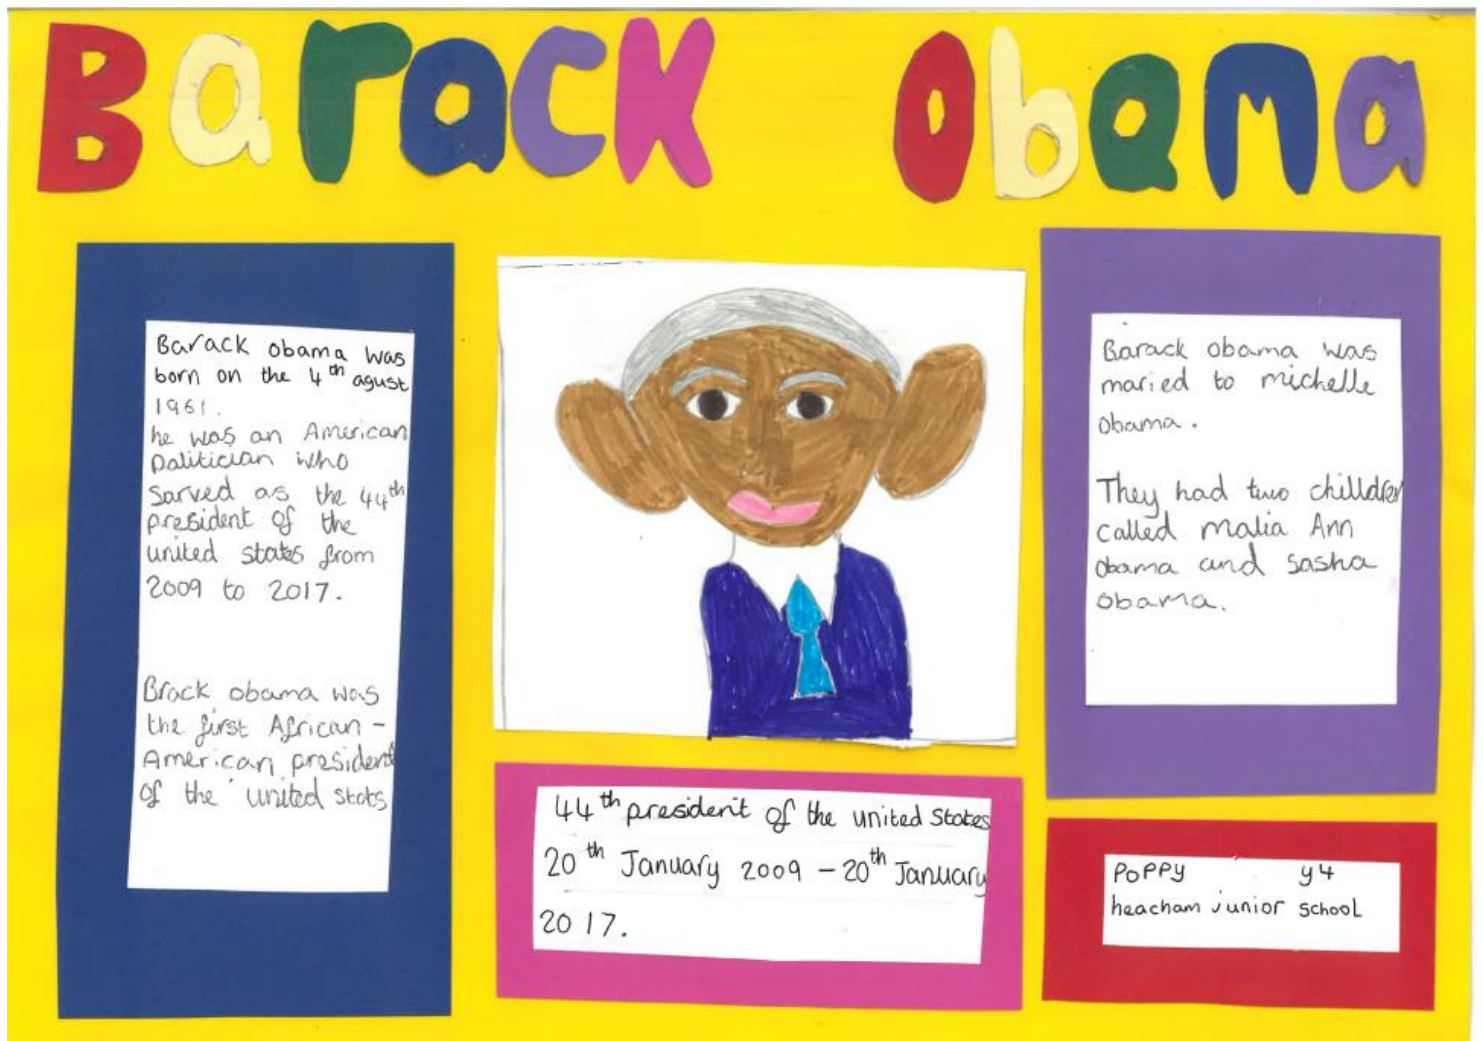 Barack Obama
Barack obama was
born on the 4th agust
1961.
he was an American
Politician who
Sarved as the 44th
president of the
united states from
2009 to 2017.
Brack obama was
the first African -
American president
of the united stats
44th president of the united States
20th January 2009 - 20th January
2017.
Barack obama was
maried to michelle
Obama.
They had two chilldren
called malia Ann
obama and sasha
obama.
PoPPy y4
heacham junior school